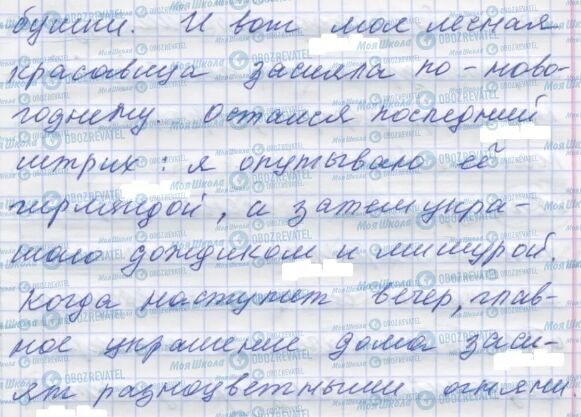 бушки. И вот моя лесная
красавица засияла по-ново-
годнему. Остался последний
штрих: я опутываю её
гирляндой, а затем укра-
шаю дождиком и мишурой.
Когда наступит вечер, глав-
ное украшение дома заси-
яет разноцветными огнями